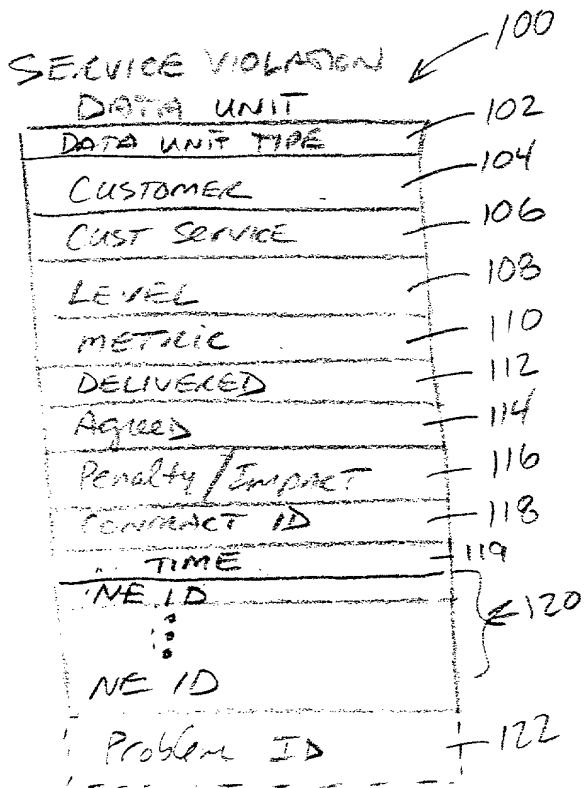 100
SERVICE VIOLATION
DATA UNIT
DATA UNIT TYPE 102
CUSTOMER 104
CUST SERVICE 106
LEVEL 108
METRIC 110
DELIVERED 112
Agreed 114
Penalty/Impact 116
CONTRACT ID 118
TIME 119
NE ID
120
NE ID
Problem ID 122